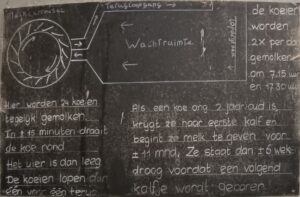 Melkcarrousel
Terugloopgang
Wachtruimte
de koeien
worden
2x per dag
gemolken
om 7.15
en 17.30 u
Hier worden 24 koeien
tegelijk gemolken.
In ± 15 minuten draait
de koe rond
Het uier is dan leeg
De koeien lopen dan
één voor één terug
Als een koe ong. 2 jaar oud is,
krijgt ze haar eerste kalf en
begint ze melk te geven voor
± 11 mnd, Ze staat dan ± 6 wek
droog voordat een volgend
kalfje wordt geboren